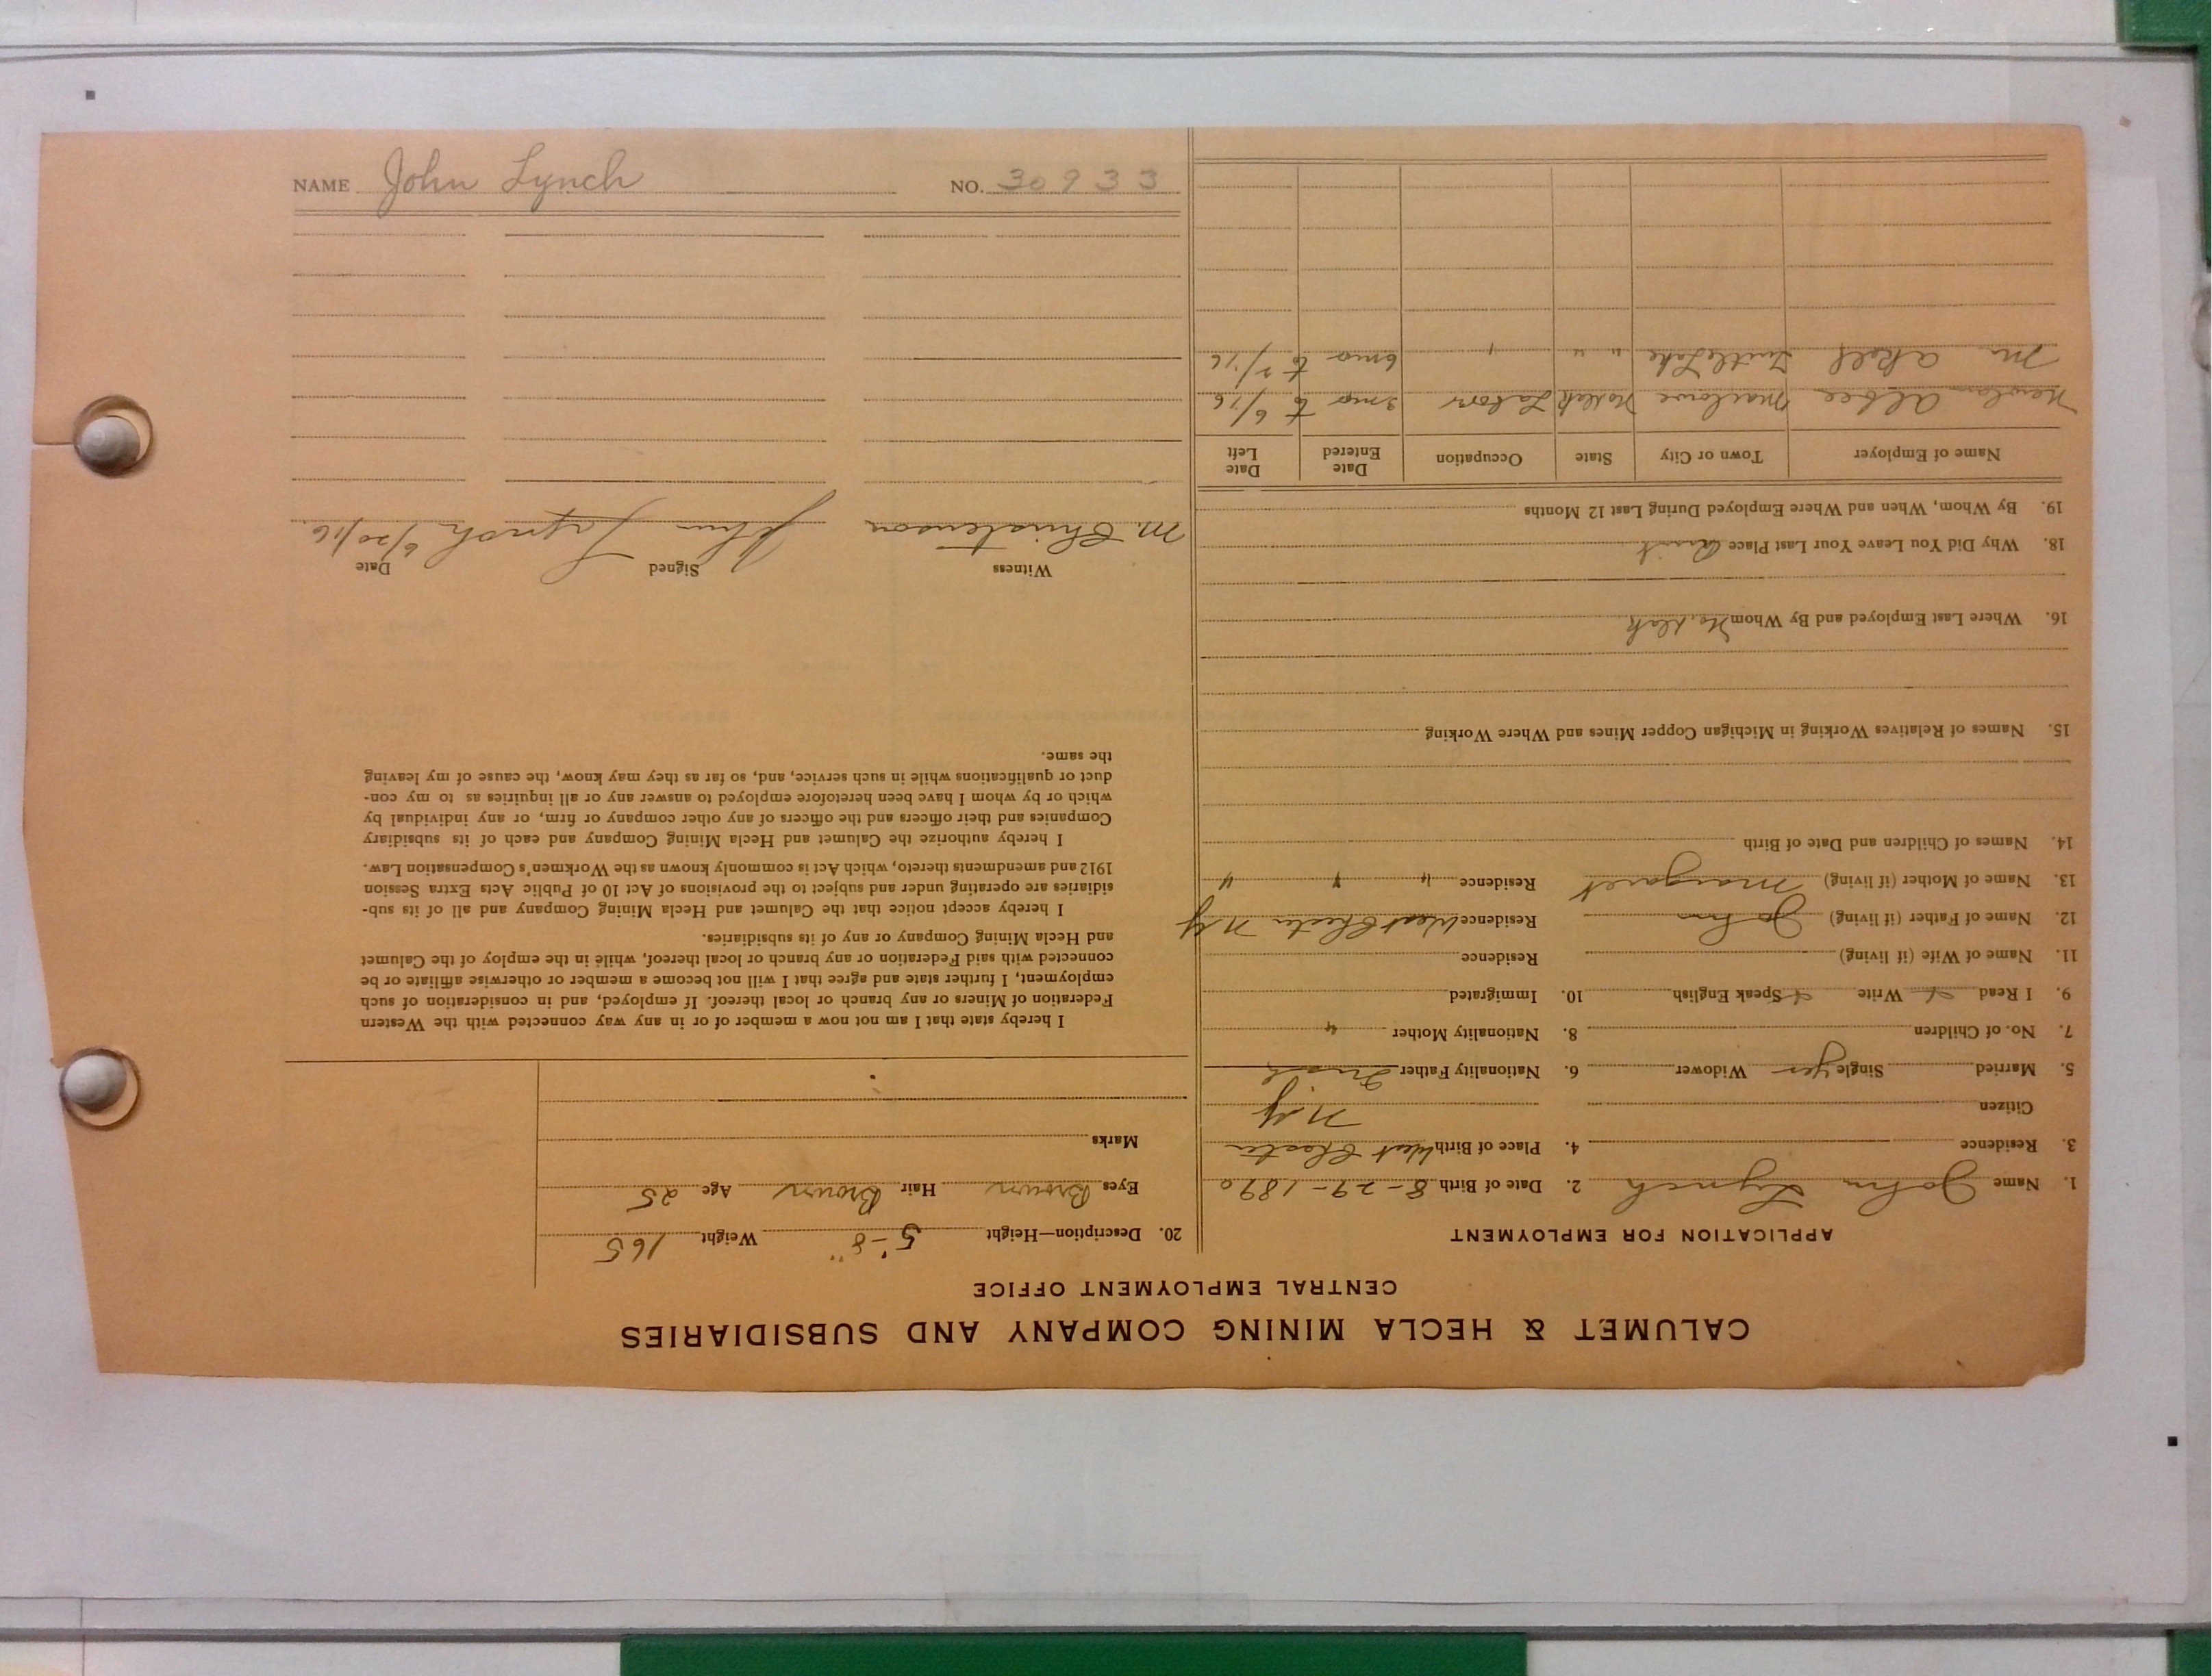 NAME John Lynch NO. 30933
CALUMET & HECLA MINING COMPANY AND SUBSIDIARIES
CENTRAL EMPLOYMENT OFFICE
APPLICATION FOR EMPLOYMENT
1. Name John Lynch 2. Date of Birth 8-29-1890
3. Residence 4. Place of Birth West Chester
Citizen N.Y.
5. Married Single yes Widower 6. Nationality Father Irish
7. No. of Children 8. Nationality Mother "
9. I Read Write Speak English 10. Immigrated
11. Name of Wife (if living) Residence
12. Name of Father (if living) John Residence West Chester N.Y.
13. Name of Mother (if living) Margaret Residence " " "
14. Names of Children and Date of Birth
15. Names of Relatives Working in Michigan Copper Mines and Where Working
16. Where Last Employed and By Whom No. Dak
18. Why Did You Leave Your Last Place Quit
19. By Whom, When and Where Employed During Last 12 Months
Name of Employer Town or City State Occupation Date Entered Date Left
Albee No Dak Labor 3 mo to 6/16
M Turtle Lake " " " 6 mo to
20. Description—Height 5'-8" Weight 165
Eyes Brown Hair Brown Age 25
Marks
I hereby state that I am not now a member of or in any way connected with the Western
Federation of Miners or any branch or local thereof. If employed, and in consideration of such
employment, I further state and agree that I will not become a member or otherwise affiliate or be
connected with said Federation or any branch or local thereof, while in the employ of the Calumet
and Hecla Mining Company or any of its subsidiaries.
I hereby accept notice that the Calumet and Hecla Mining Company and all of its sub-
sidiaries are operating under and subject to the provisions of Act 10 of Public Acts Extra Session
1912 and amendments thereto, which Act is commonly known as the Workmen's Compensation Law.
I hereby authorize the Calumet and Hecla Mining Company and each of its subsidiary
Companies and their officers and the officers of any other company or firm, or any individual by
which or by whom I have been heretofore employed to answer any or all inquiries as to my con-
duct or qualifications while in such service, and, so far as they may know, the cause of my leaving
the same.
Witness Signed Date
M. Christenson John Lynch 6/20/16.